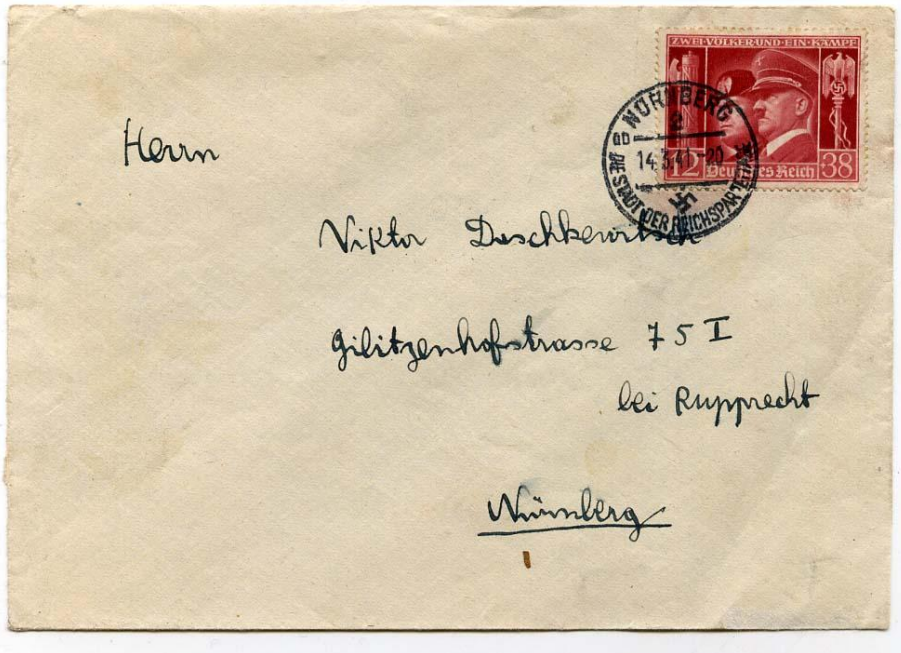 ZWEI·VÖLKER·UND·EIN·KAMPF
12 Deutsches Reich 38
NÜRNBERG
2
BD
14.3.41-20
DIE STADT DER REICHSPARTEITAGE
Herrn
Viktor Daschkewitsch
Gilitzenhofstrasse 75 I
bei Rupprecht
Nürnberg